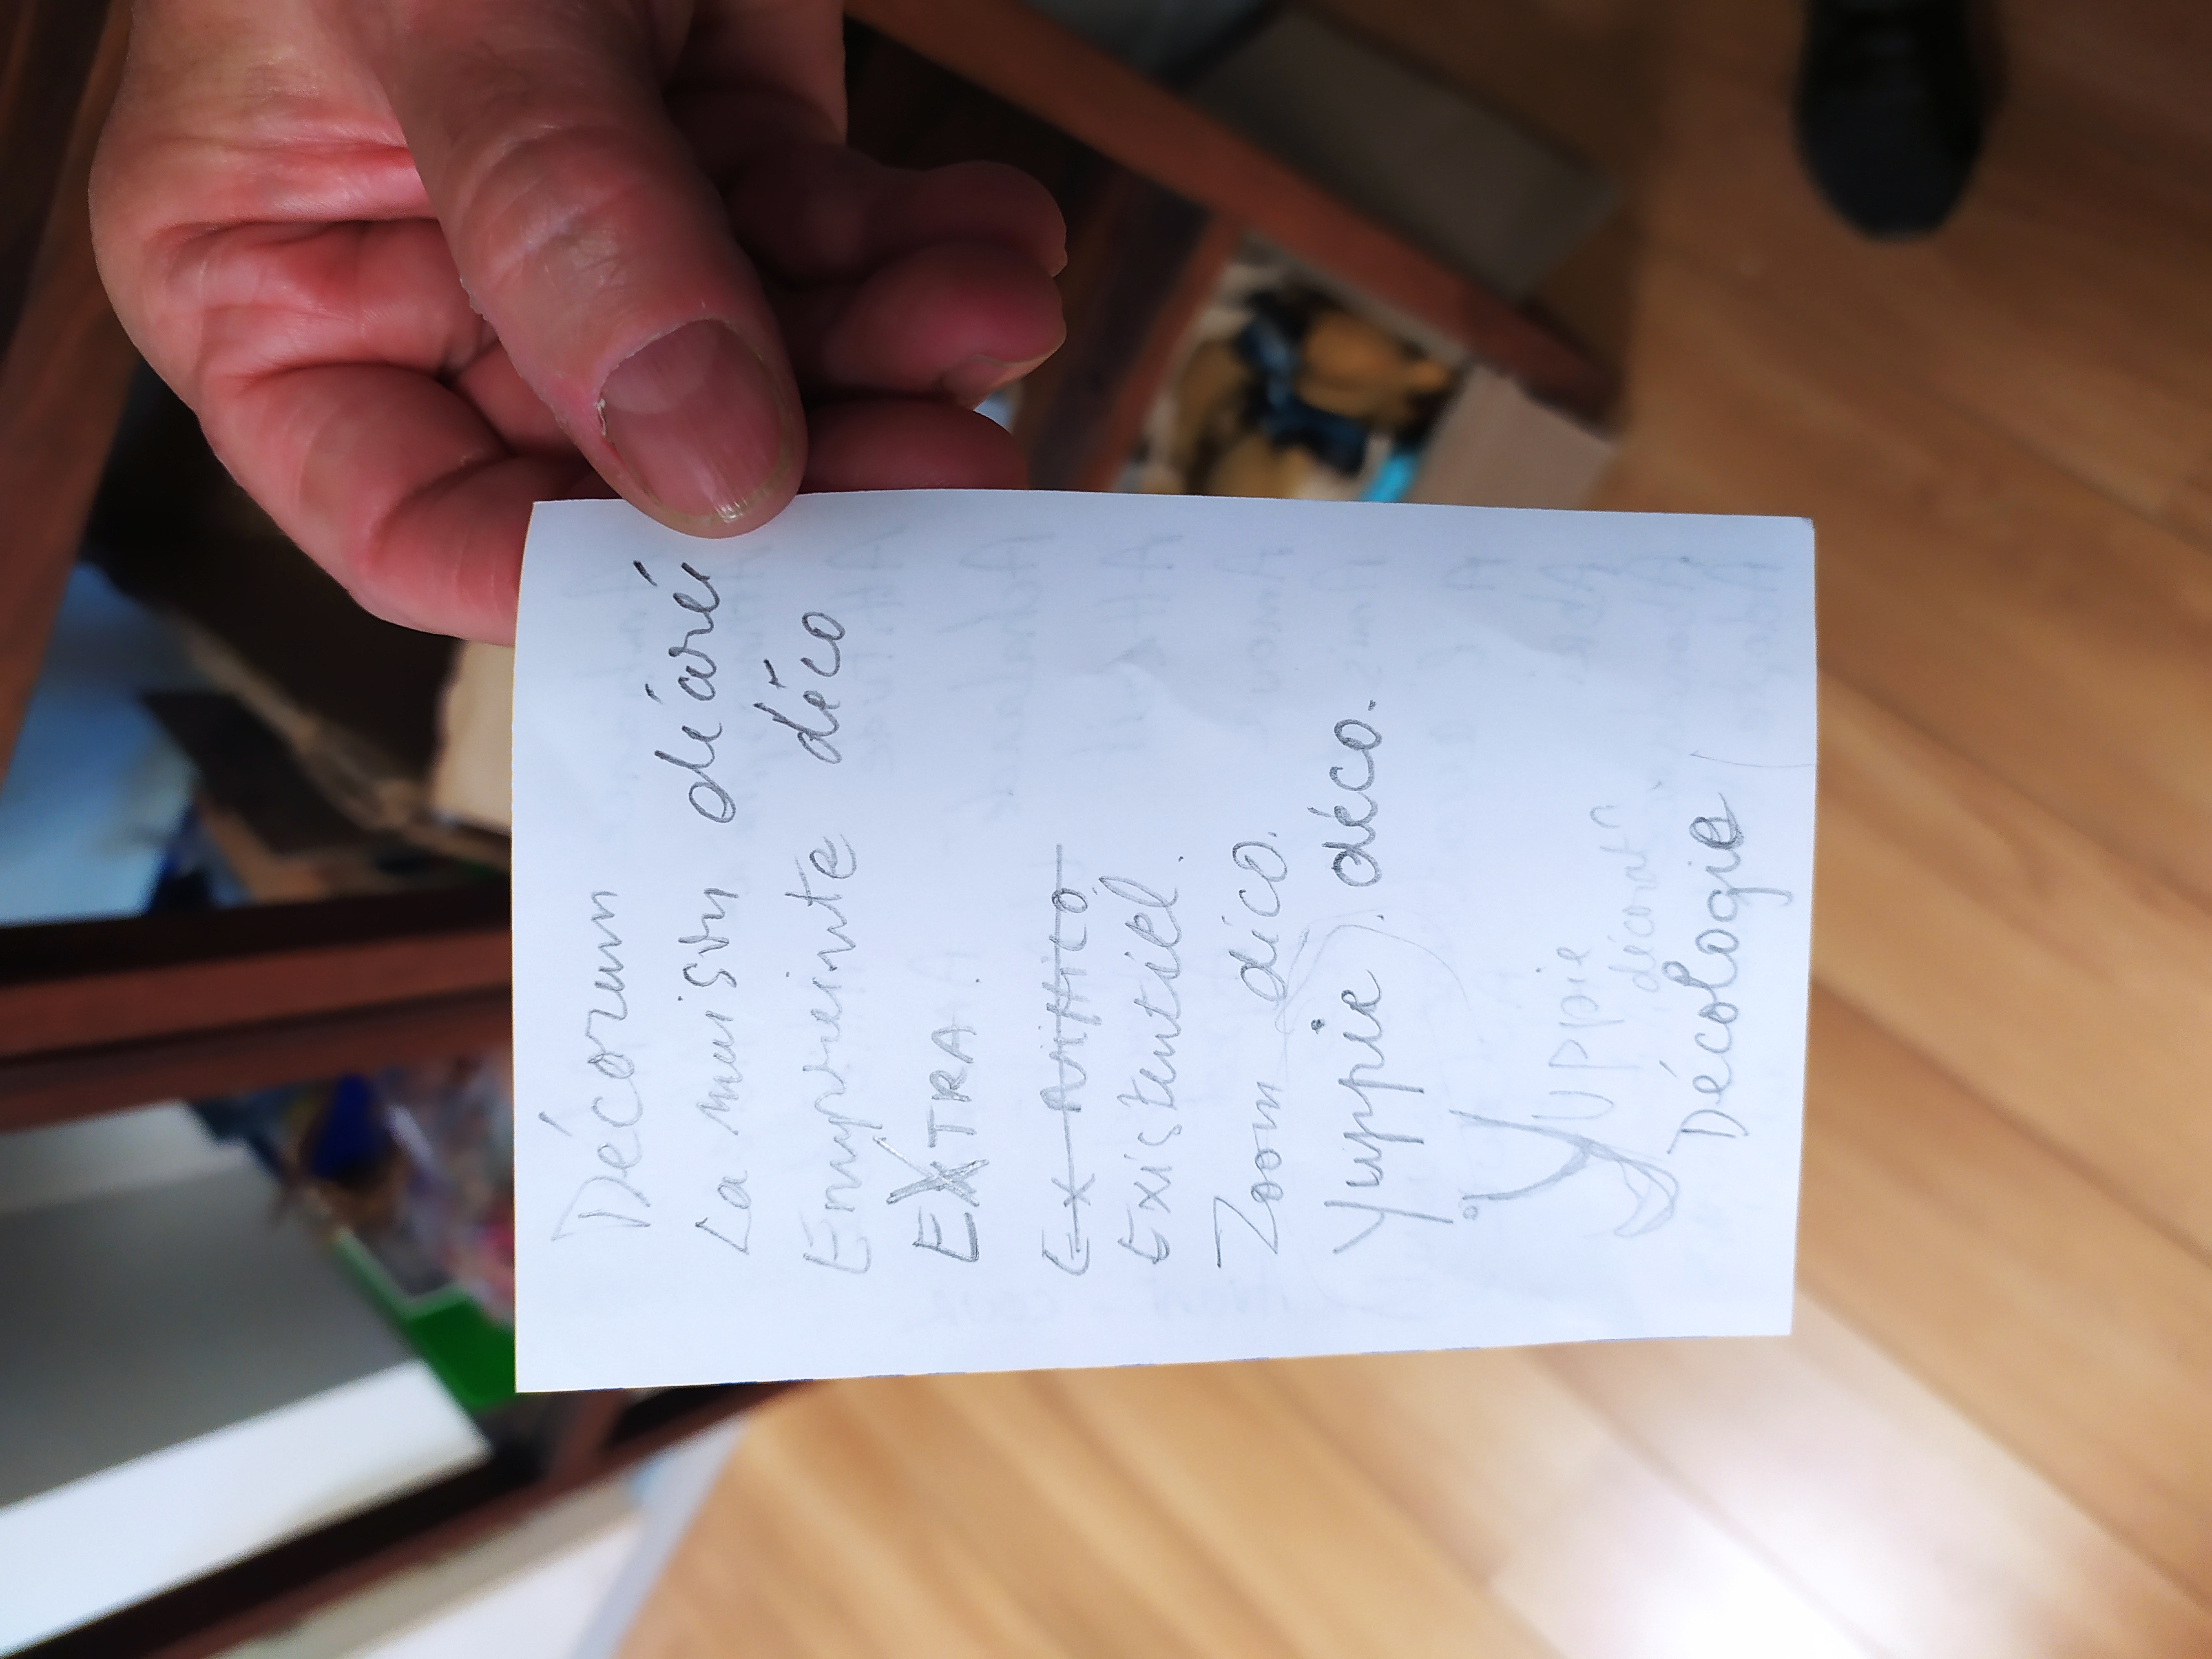 Décorum
La maison décorée
Empreinte déco
EXTRA.
Existentiel.
Zoom déco.
Yuppie. déco.
Yuppie
décorat°n
Décologie